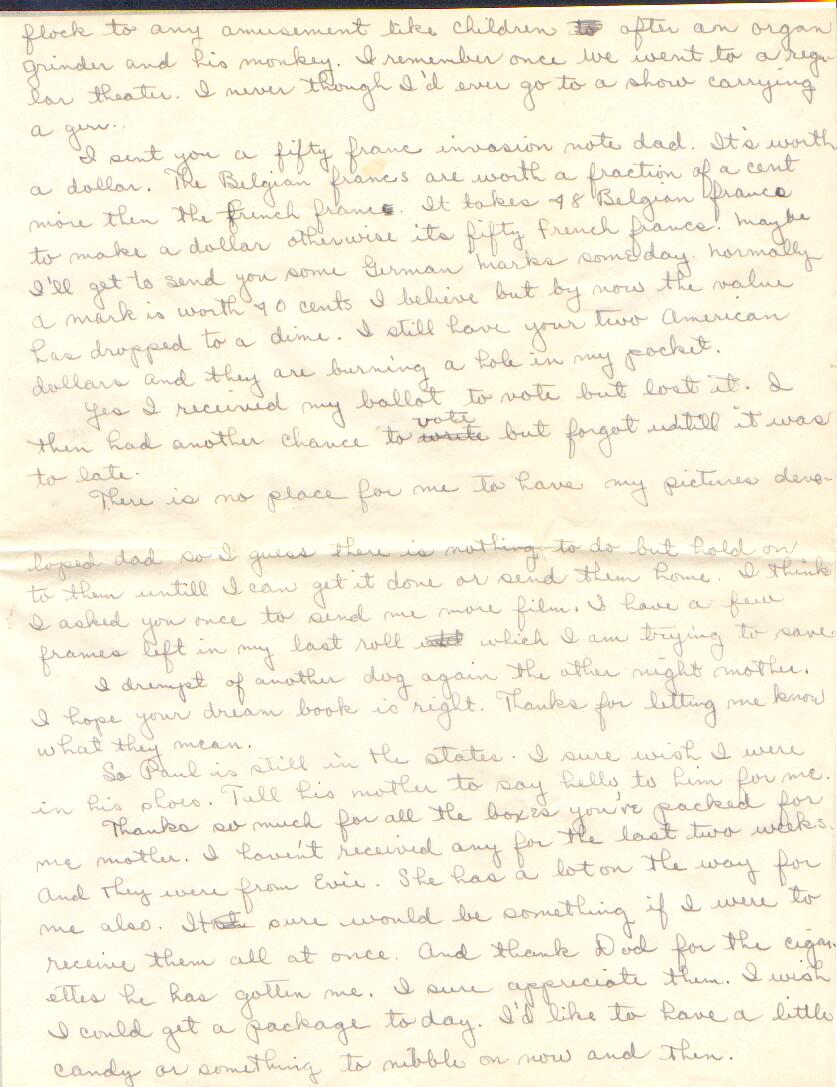 flock to any amusement like children to after an organ
grinder and his monkey. I remember once we went to a regu-
lar theater. I never though I'd ever go to a show carrying
a gun.
I sent you a fifty franc invasion note dad. It's worth
a dollar. The Belgian francs are worth a fraction of a cent
more then the french francs. It takes 48 Belgian francs
to make a dollar otherwise its fifty French francs. Maybe
I'll get to send you some German marks someday. Normally
a mark is worth 40 cents I believe but by now the value
has dropped to a dime. I still have your two American
dollars and they are burning a hole in my pocket.
Yes I received my ballot to vote but lost it. I
then had another chance to write vote but forgot untill it was
to late.
There is no place for me to have my pictures deve-
loped dad so I guess there is nothing to do but hold on
to them untill I can get it done or send them home. I think
I asked you once to send me more film. I have a few
frames left in my last roll which I am trying to save
I drempt of another dog again the other night mother.
I hope your dream book is right. Thanks for letting me know
what they mean.
So Paul is still in the states. I sure wish I were
in his shoes. Tell his mother to say hello to him for me.
Thanks so much for all the boxes you've packed for
me mother. I haven't received any for the last two weeks.
And they were from Evie. She has a lot on the way for
me also. It sure would be something if I were to
receive them all at once. And thank Dad for the cigar-
ettes he has gotten me. I sure appreciate them. I wish
I could get a package today. I'd like to have a little
candy or something to nibble on now and then.